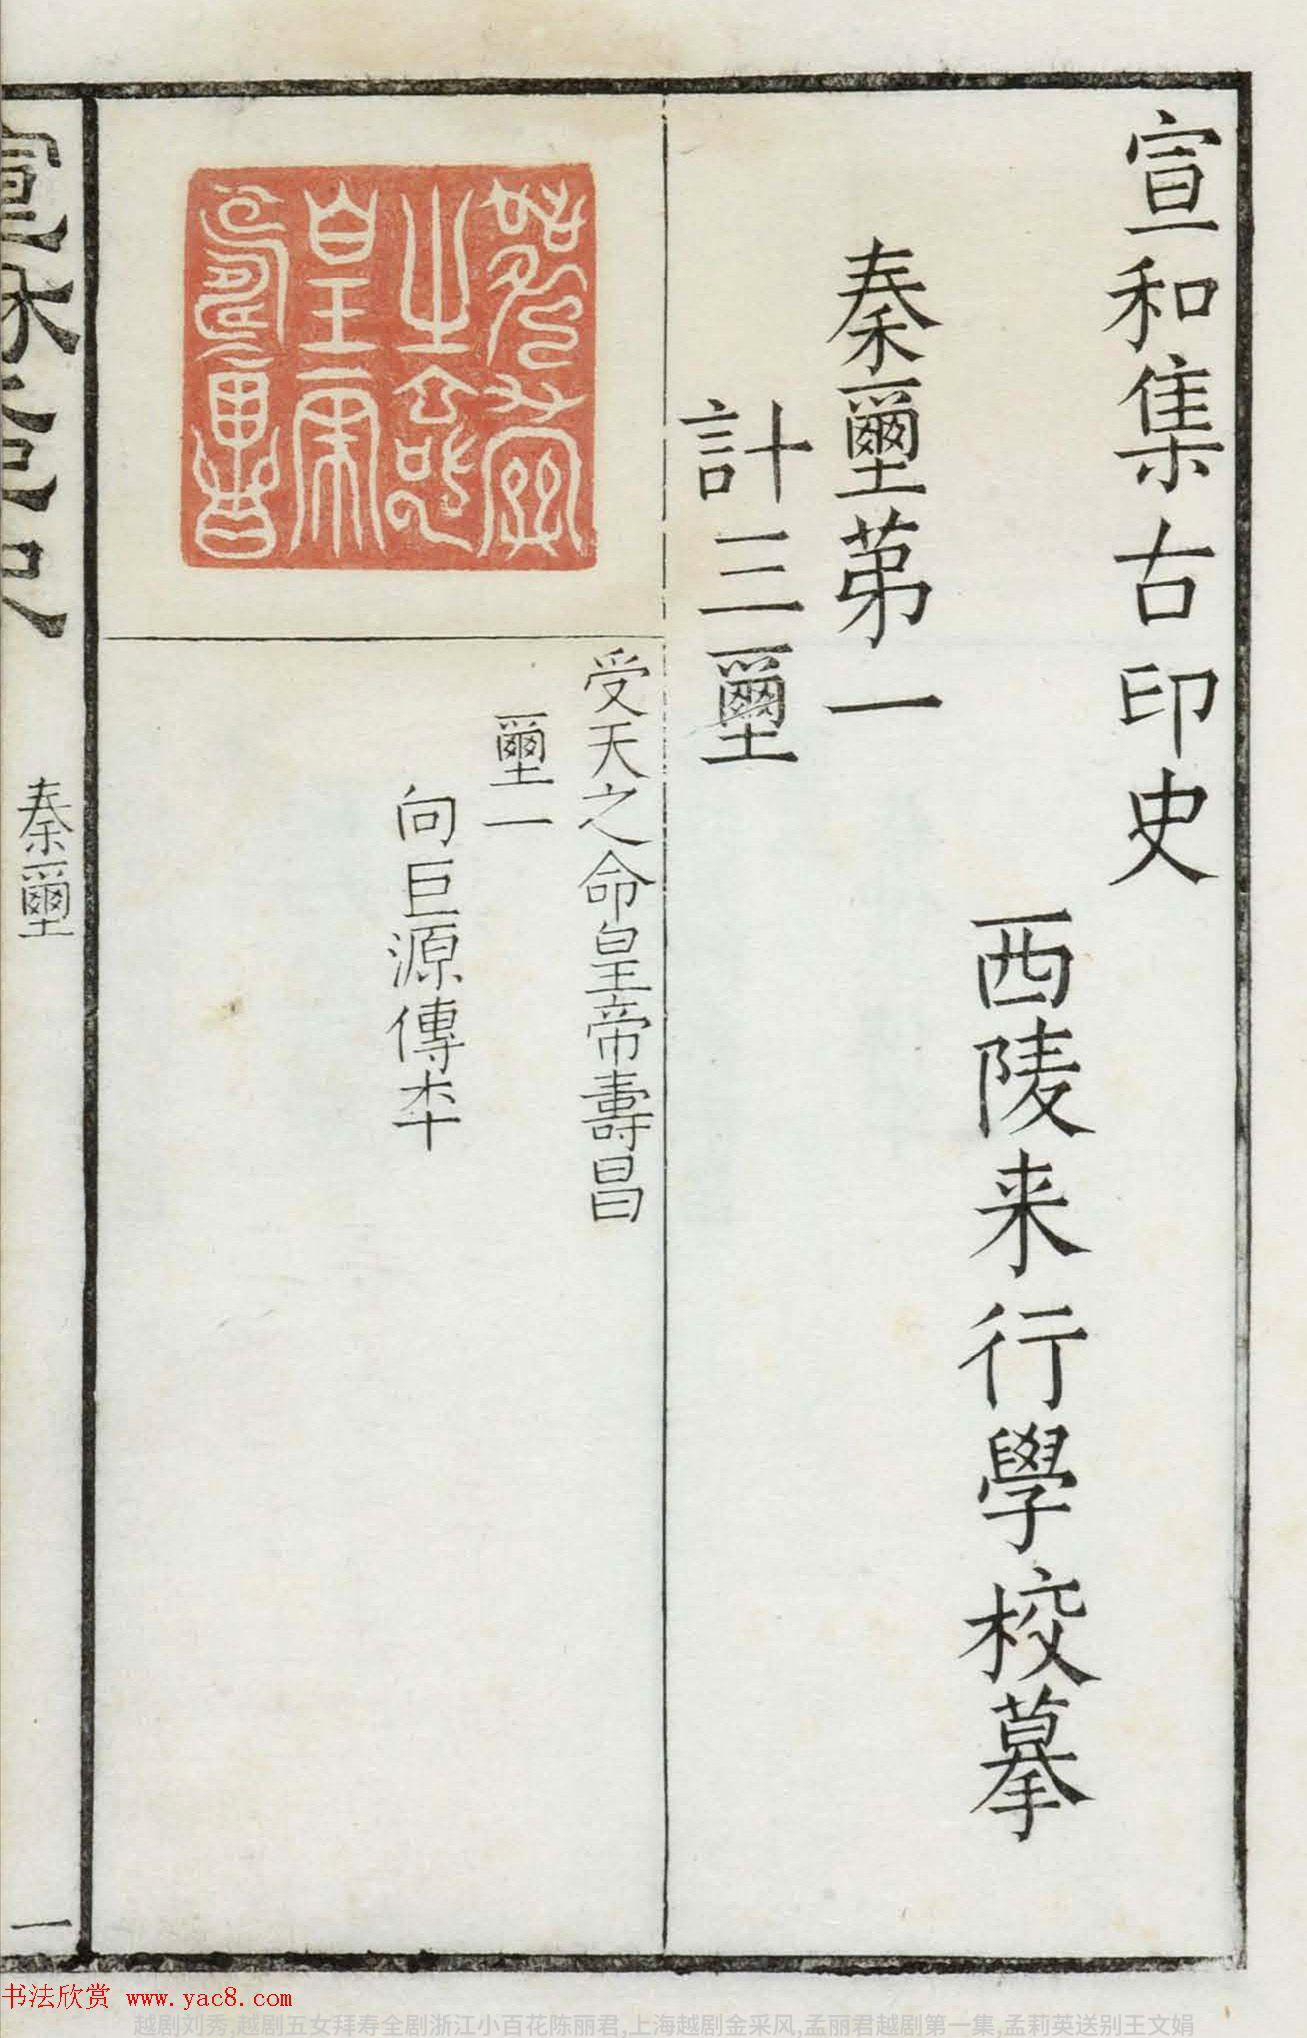 宣和集古印史
西陵来行學校摹
秦璽苐一
計三璽
受天之命皇帝壽昌
璽一
向巨源傳夲
宣和集古印史
秦璽
一
书法欣赏 www.yac8.com
越剧刘秀,越剧五女拜寿全剧浙江小百花陈丽君,上海越剧金采风,孟丽君越剧第一集,孟莉英送别王文娟